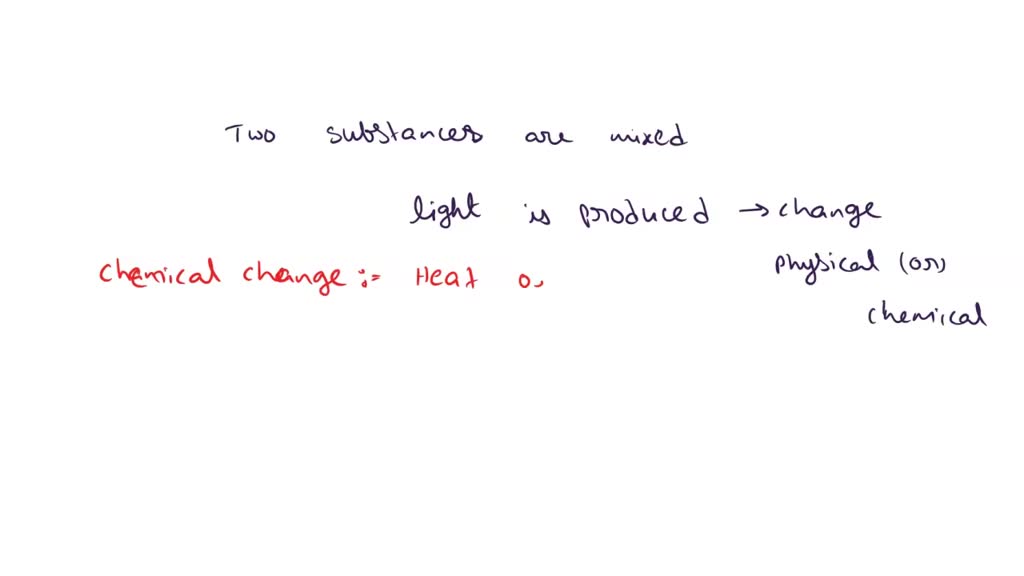 Two substances are mixed
light is produced → change
physical (or)
chemical
chemical change := Heat o